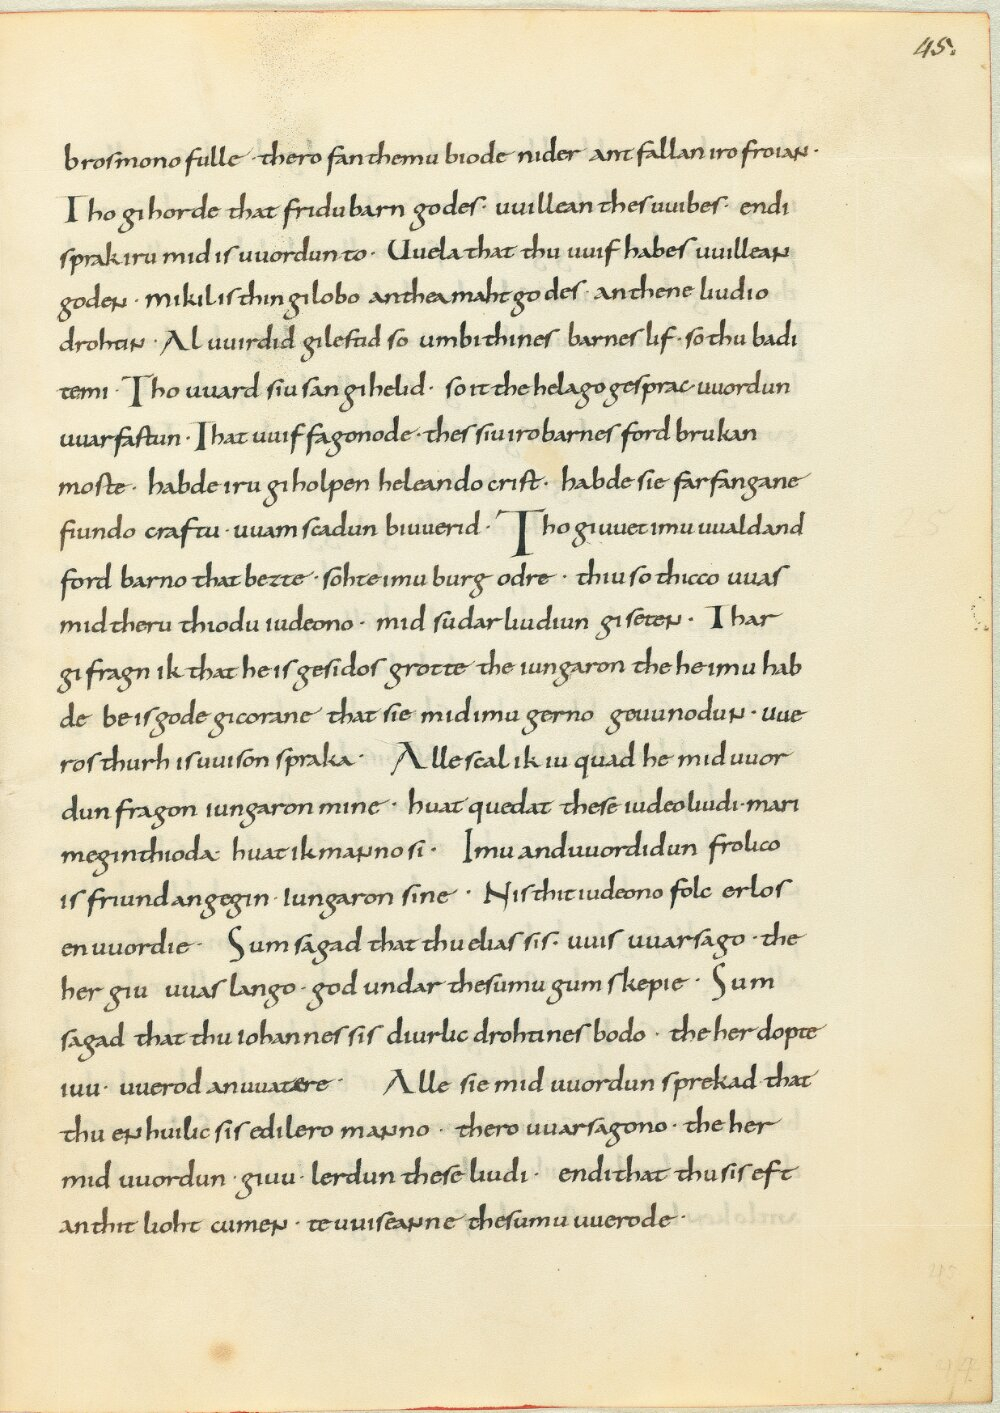 45.
brosmono fulle · thero fan themu biode nider ant fallan iro froian·
Tho gi horde that fridu barn godes· uuillean thes uuibes· endi
sprak iru mid is uuordun to· Uuela that thu uuif habes uuillean
goden · mikil is thin gilobo an thea maht godes · an thene liudio
drohtin · Al uuirdid gilestid so umbi thines barnes lif · so thu badi
te mi · Tho uuard siu san gi helid · so it the helago gesprac uuordun
uuar fastun · That uuif fagonode · thes siu iro barnes ford brukan
moste · habde iru giholpen heleando crist · habde sie farfangane
fiundo craftu · uuam scadun biuuerid · Tho giuuet imu uualdand
ford barno that bezte · sohte imu burg odre · thiu so thicco uuas
mid theru thiodu iudeono · mid sudar liudiun gi seten · Thar
gi fragn ik that he is gesidos grotte the iungaron the he imu hab
de be is gode gicorane that sie mid imu gerno geuunodun · uue
ros thurh is uuison spraka · Alle scal ik iu quad he mid uuor
dun fragon iungaron mine · huat quedat these iudeo liudi · mari
meginthioda· huat ik manno si · Imu anduuordidun frolico
is friund angegin · iungaron sine · Nis thit iudeono folc erlos
enuuordie · Sum sagad that thu elias sis · uuis uuarsago · the
her giu uuas lango · god undar thesumu gumskepie · Sum
sagad that thu iohannes sis diurlic drohtines bodo · the her dopte
iuu · uuerod an uuatære · Alle sie mid uuordun sprekad that
thu en huilic sis edilero manno · thero uuarsagono · the her
mid uuordun · giuu · lerdun these liudi · endi that thu sis eft
an thit lioht cumen · te uuiseanne thesumu uuerode ·